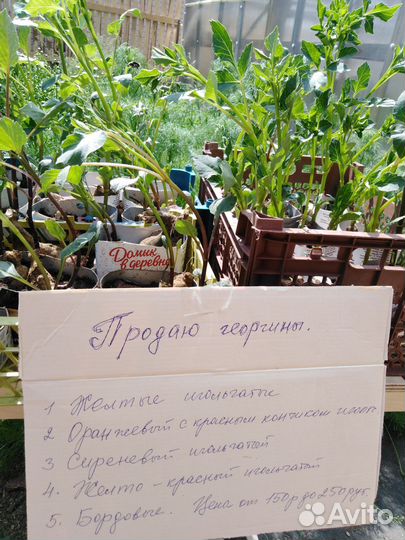 Домик
в деревне
Продаю георгины.
1 Желтые игольчатые
2 Оранжевый с красным кончиком игольч
3 Сиреневый игольчатый
4. Желто-красный игольчатый
5. Бордовые. Цена от 150р до 250 руб
Avito